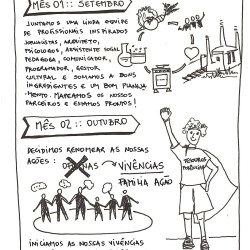 MÊS 01 :: SETEMBRO
JUNTAMOS UMA LINDA EQUIPE
DE PROFISSIONAIS INSPIRADOS
JORNALISTAS, ARQUITETO,
PSICÓLOGOS, ASSISTENTE SOCIAL
PEDAGOGA, COMUNICADOR,
PROGRAMADOR, GESTOR
CULTURAL E SOMAMOS A BONS
INGREDIENTES E UM BOM PLANEJA
MENTO. MAPEAMOS OS NOSSOS
PARCEIROS E ESTAMOS PRONTOS!
MÊS 02 :: OUTUBRO
DECIDIMOS RENOMEAR AS NOSSAS
AÇÕES : OFICINAS → VIVÊNCIAS
FAMÍLIA AÇÃO
INICIAMOS AS NOSSAS VIVÊNCIAS